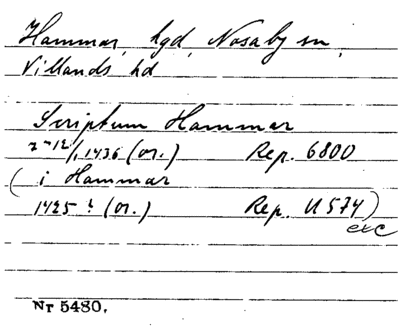 Hammar, hgd, Nosaby sn,
Villands hd
Scriptum Hammar
2-12/1 1436 (or.) Rep. 6800
(i Hammar
1425? (or.) Rep. U 574)
exc
Nr 5480.